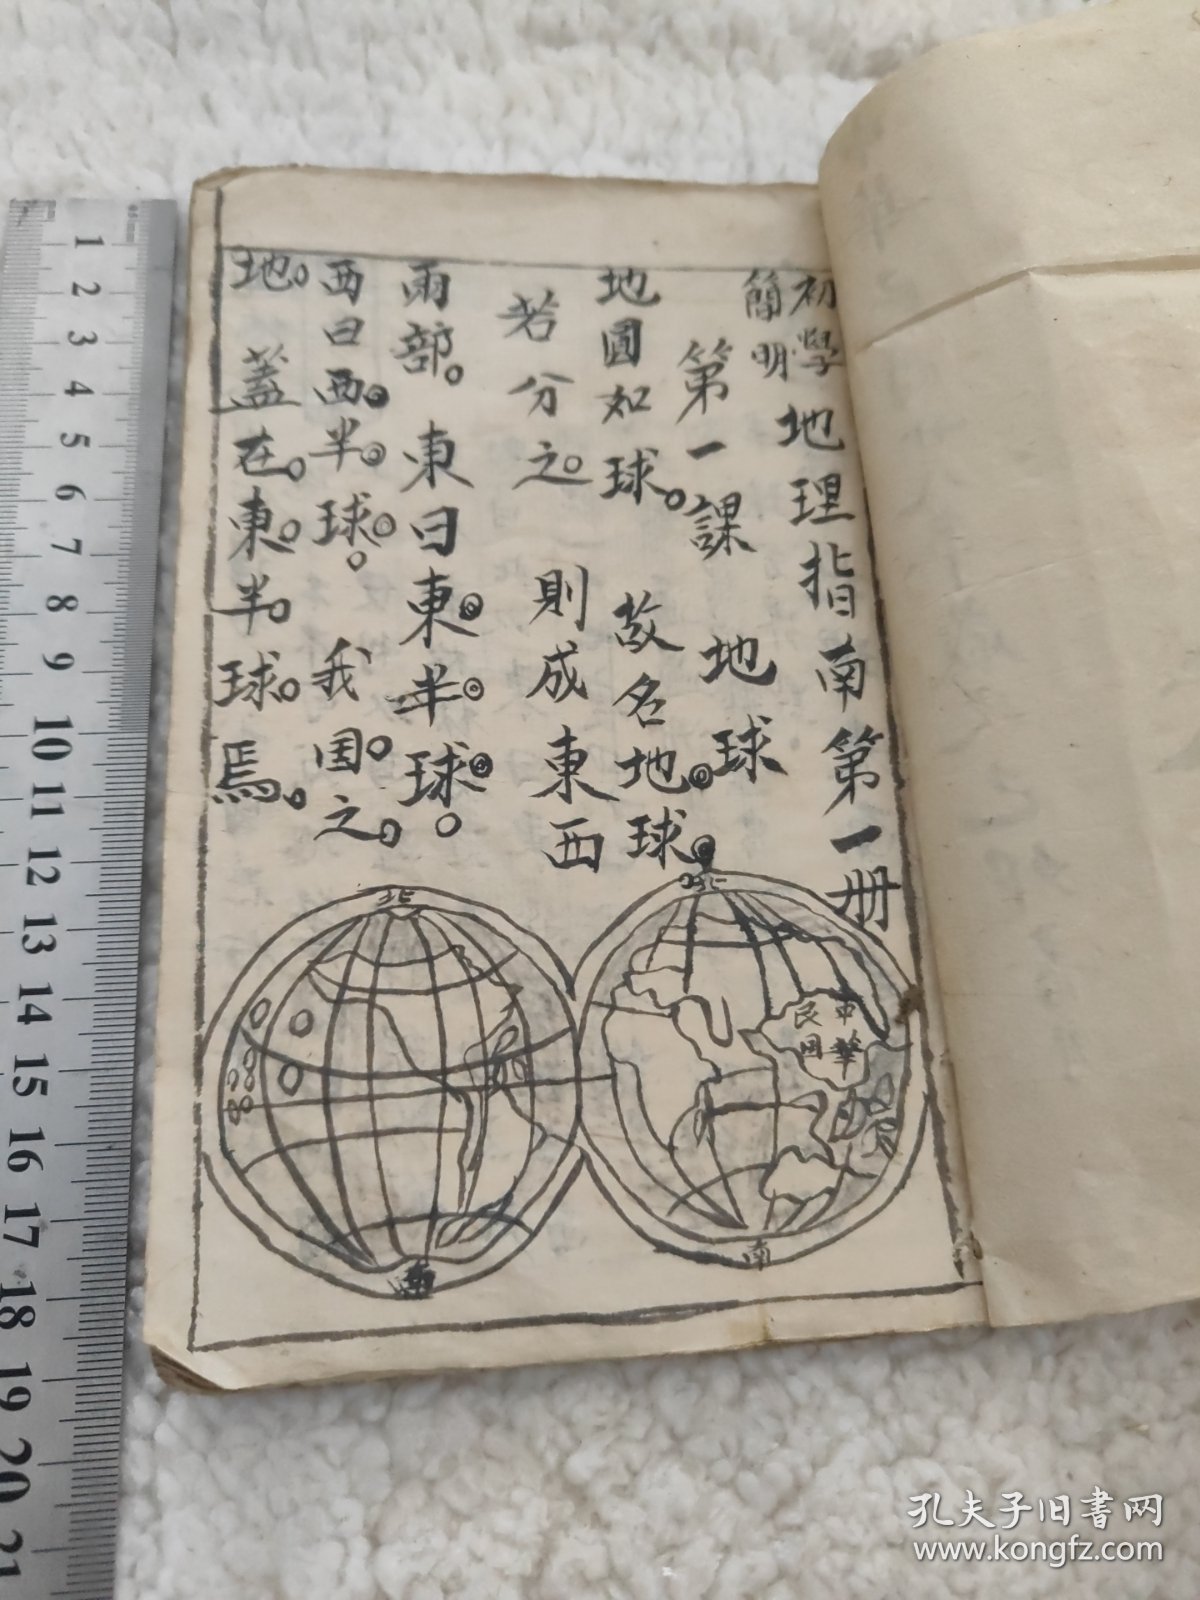 初學簡明地理指南第一册
第一課 地球
地圓如球。故名地球。
若分之。則成東西
兩部。東曰東半球。
西曰西半球。我国之。
地。蓋在東半球焉。
北
南
北
中華民囯
南
1 2 3 4 5 6 7 8 9 10 11 12 13 14 15 16 17 18 19 20 21
孔夫子旧书网
www.kongfz.com